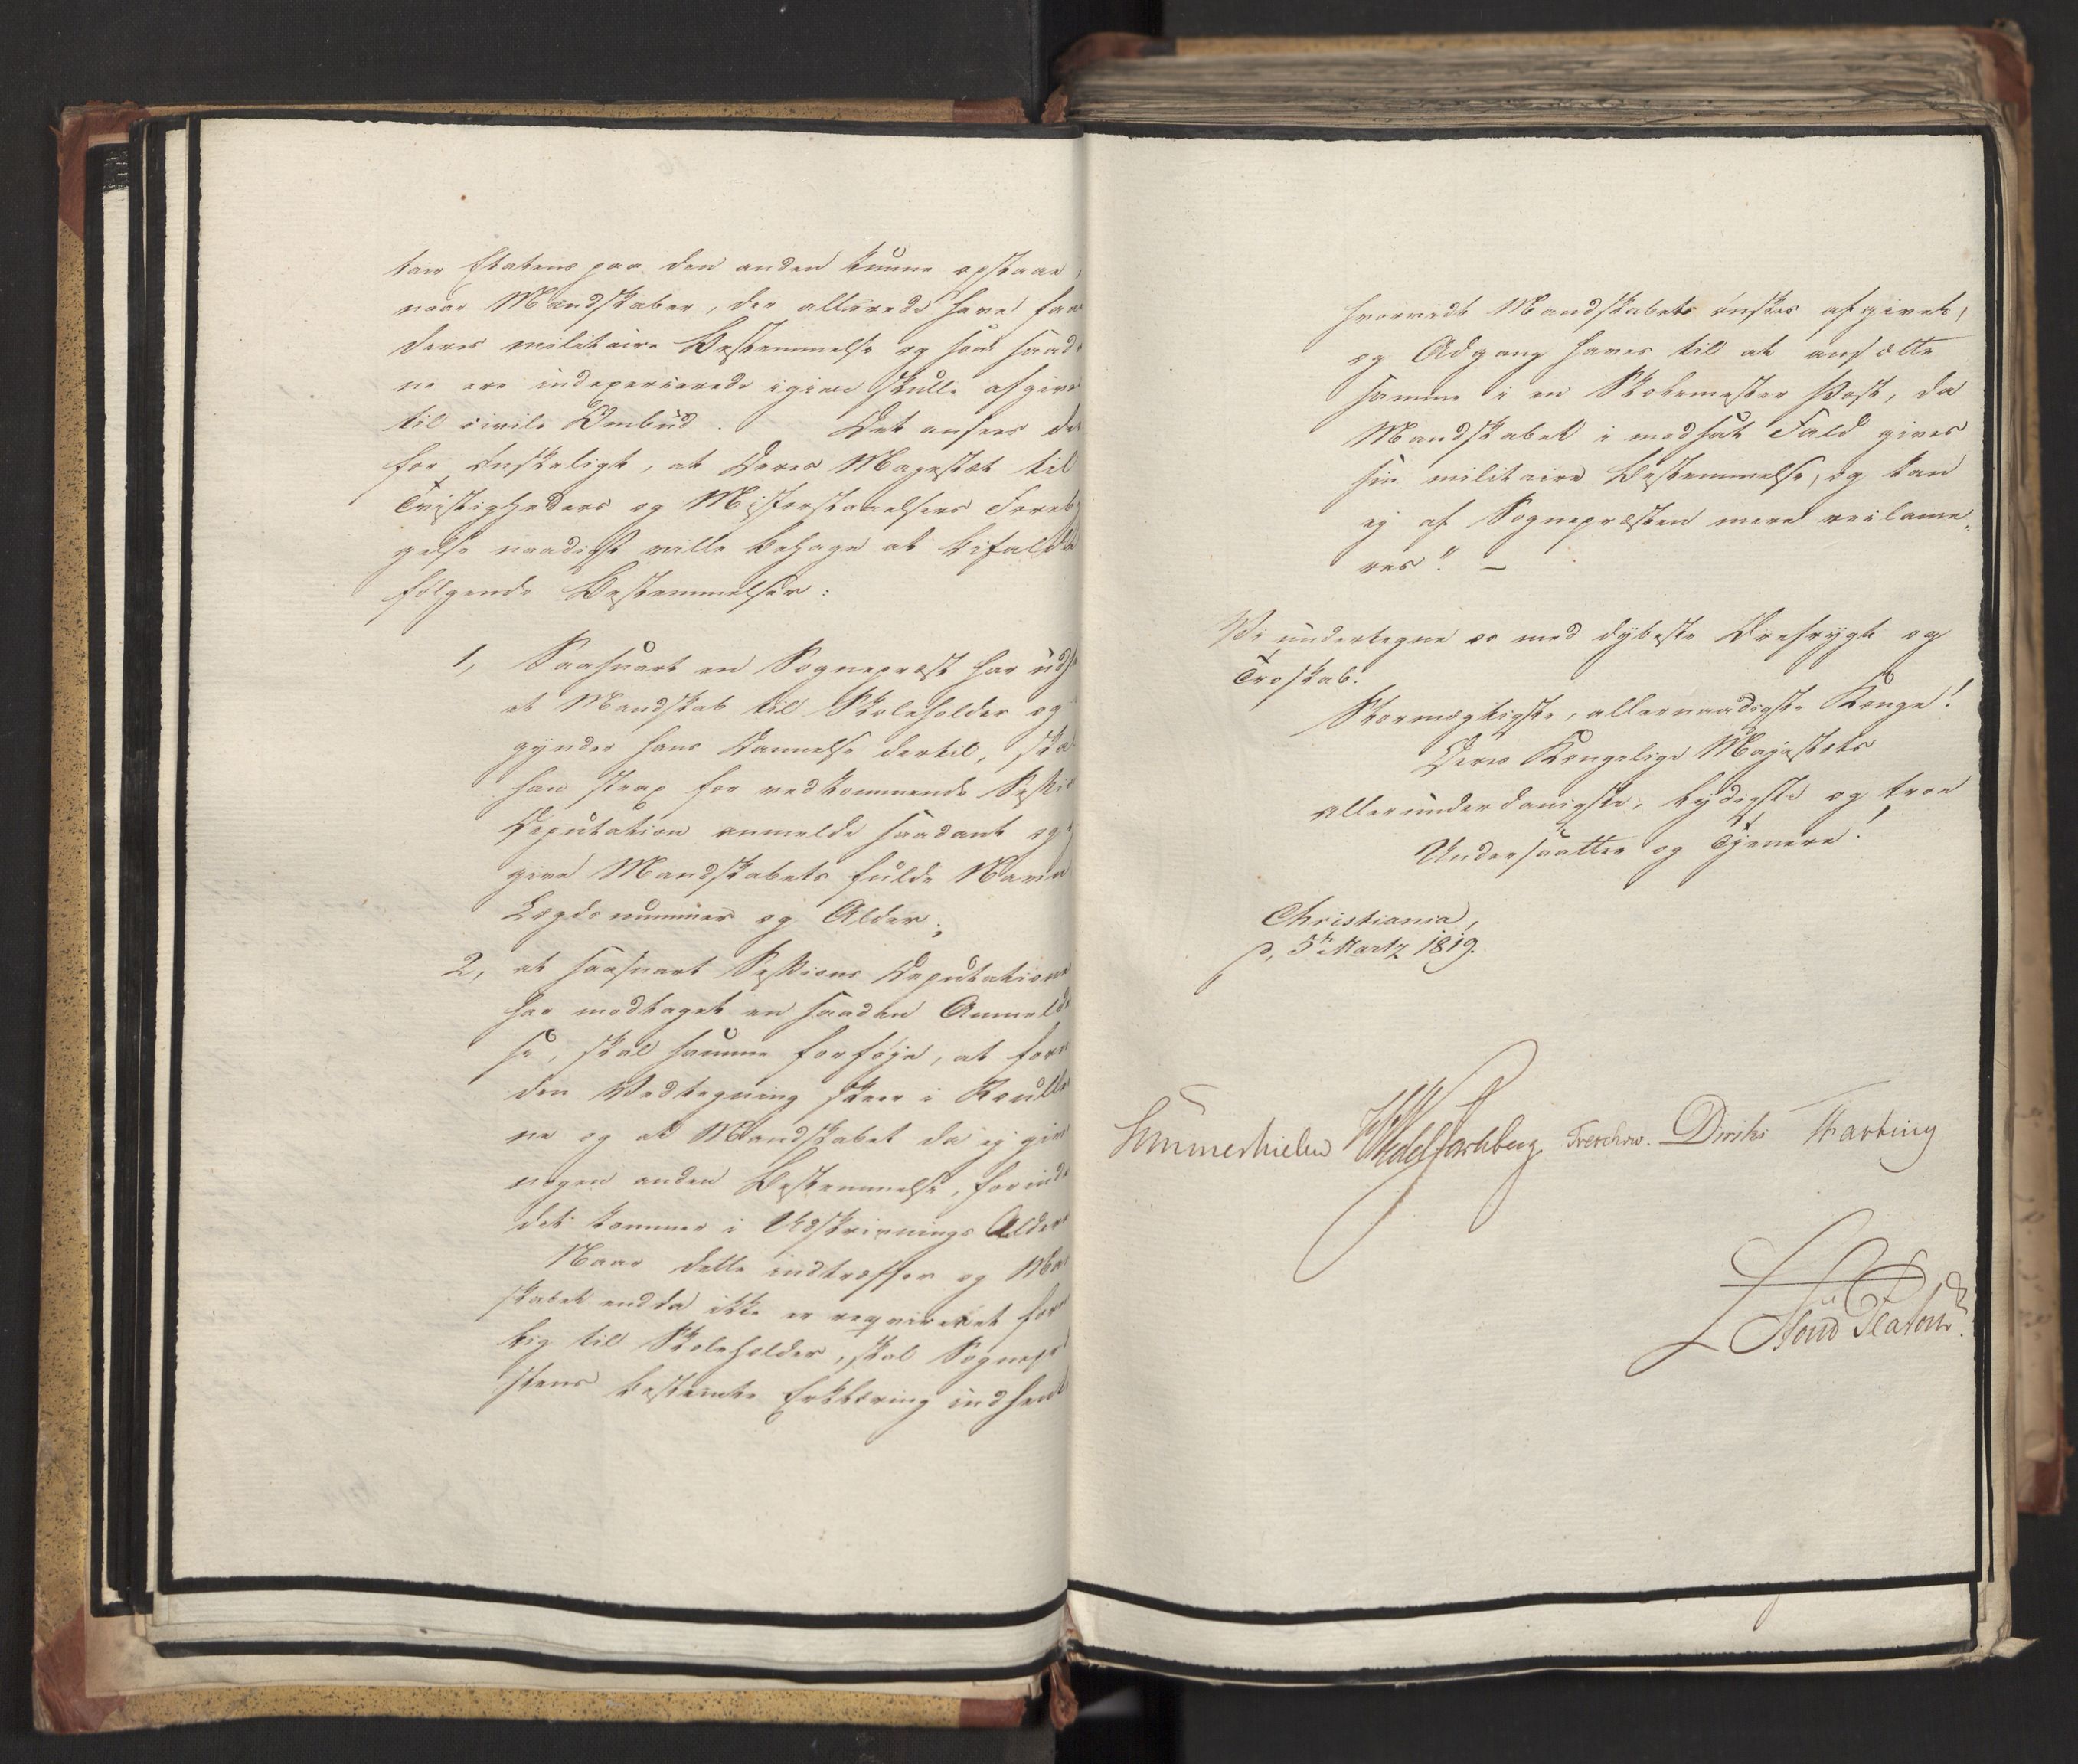 tair Etatens paa den anden kunne opstaae,
naar Mandskaber, der allerede have faae
deres militaire Bestemmelse og som saada
ne ere indexercerede igien skulle afgives
til civile Ombud. Det ansees der
for ønskeligt, at Deres Majestæt til
Tvistigheders og Misforstaaelsers Foreby
gelse naadigst ville behage at bifalde
følgende Bestemmelser:
1, Saasnart en Sognepræst har uds
et Mandskab til Skoleholder og
gynder hans Dannelse dertil, skal
han strax for vedkommende Sessio
Deputation anmelde saadant og
give Mandskabets fulde Navn
Lægdsnummer og Alder;
2, at saasnart Sessions Deputationen
har modtaget en saadan Anmeld
se, skal samme forføje, at forn
den Vedtegning skeer i Rulle
ne og at Mandskabet da ej give
nogen anden Bestemmelse, forinde
det kommer i Udskrivnings Alder
Naar dette indtræffer og Man
skabet endda ikke er reqvireret
til Skoleholder, skal Sognepr
stens bestemte Erklæring indhen
hvorvidt Mandskabet ønskes afgivet,
og Adgang haves til at ansætte
samme i en Skolemester Post, da
Mandskabet i modsat Fald gives
sin militaire Bestemmelse, og kan
ej af Sognepræsten mere reclame„
res". –
Vi undertegne os med dybeste Ærefrygt og
Troskab.
Stormægtigste, allernaadigste Konge!
Deres Kongelige Majestæts
allerunderdanigste, lydigste og troe
Undersaatter og Tjenere!
Christiania,
d, 5te Martz 1819.
Sommerhielm HWedel Jarlsberg Treschow. Diriks Motzfeldt